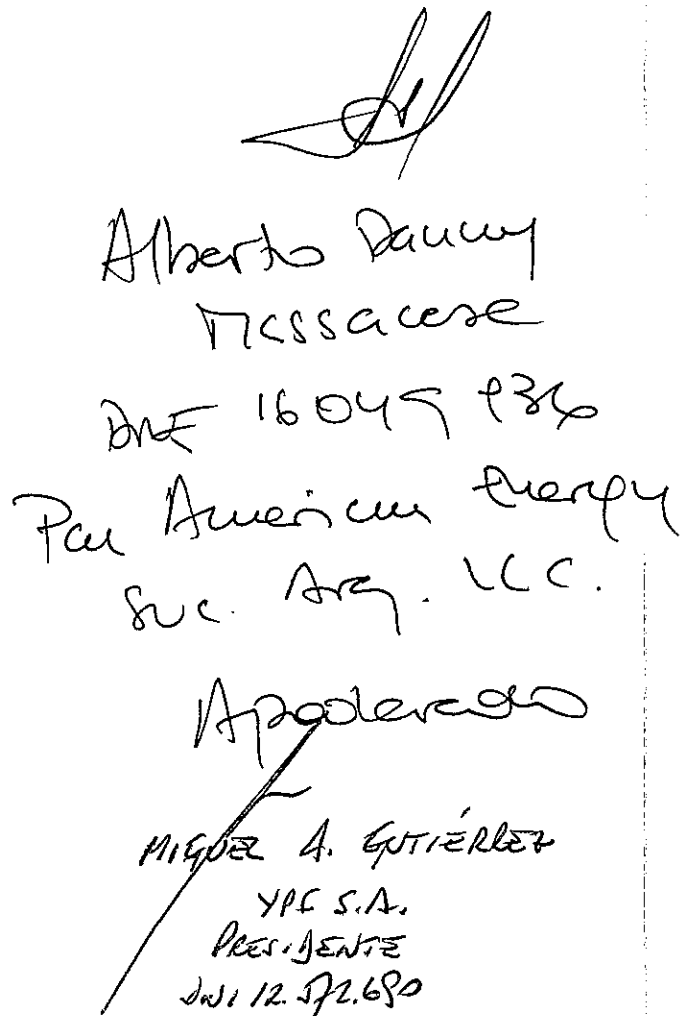 Alberto Danny
Massacese
DNI 16049936
Pan American Energy
Suc. Arg. LLC.
Apoderado
MIGUEL A. GUTIÉRREZ
YPF S.A.
PRESIDENTE
DNI 12.572.690